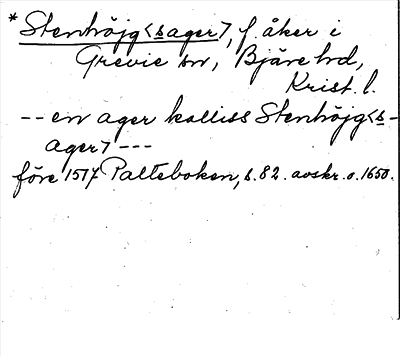 * Stenhöjg<s ager>, f. åker i
Grevie sn, Bjäre hd,
Krist. l.
-- en ager kalliss Stenhöjg<s-
ager> ---
före 1517 Palteboken, s. 82. avskr. o. 1650.